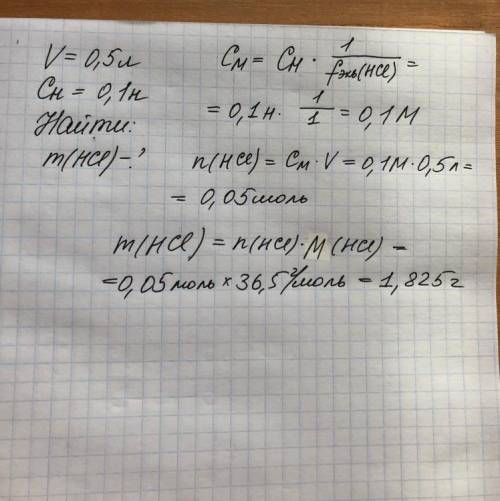 V = 0,5 л
Cн = 0,1 н
Найти:
m(HCl) - ?
Cм = Cн · 1/fэкв(HCl) =
= 0,1 н · 1/1 = 0,1 М
n(HCl) = Cм · V = 0,1 М · 0,5 л =
= 0,05 моль
m(HCl) = n(HCl) · M(HCl) =
= 0,05 моль × 36,5 г/моль = 1,825 г